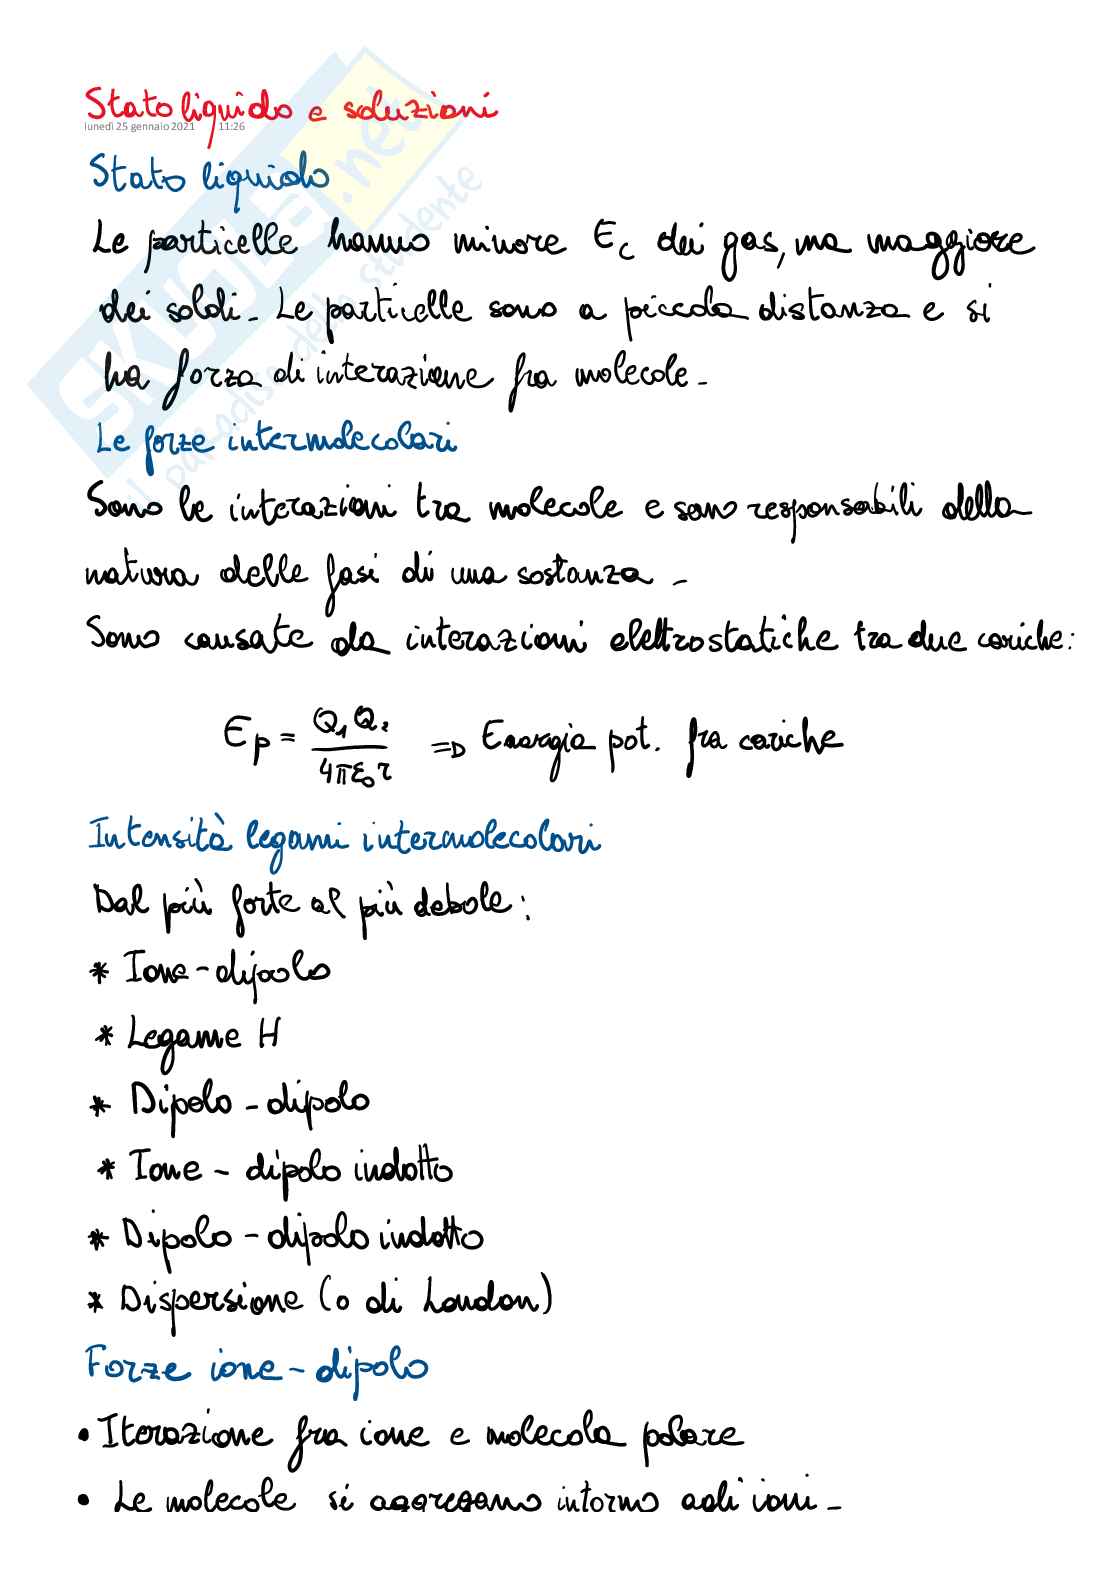 Stato liquido e soluzioni
lunedì 25 gennaio 2021 11:26
Stato liquido
Le particelle hanno minore Ec dei gas, ma maggiore
dei soldi_ Le particelle sono a piccola distanza e si
ha forza di interazione fra molecole_
Le forze intermolecolari
Sono le interazioni tra molecole e sono responsabili della
natura delle fasi di una sostanza_
Sono causate da interazioni elettrostatiche tra due cariche:
Ep = Q1 Q2 / 4πε0 r => Energia pot. fra cariche
Intensità legami intermolecolari
Dal più forte al più debole:
* Ione-dipolo
* Legame H
* Dipolo-dipolo
* Ione-dipolo indotto
* Dipolo-dipolo indotto
* Dispersione (o di London)
Forze ione-dipolo
• Iterazione fra ione e molecola polare
• Le molecole si aggregano intorno agli ioni_
SKUOLA.net
il paradiso dello studente